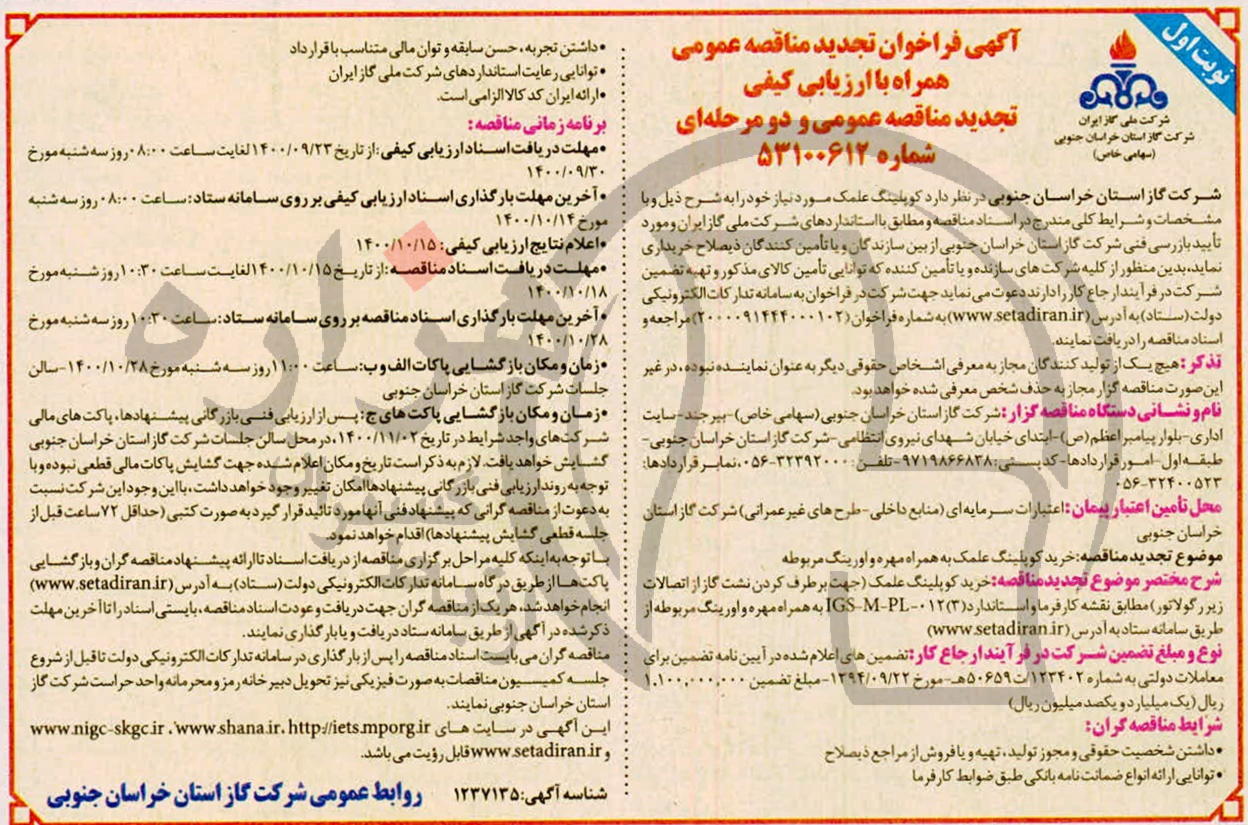 نوبت اول
شرکت ملی گاز ایران
شرکت گاز استان خراسان جنوبی
(سهامی خاص)
آگهی فراخوان تجدید مناقصه عمومی
همراه با ارزیابی کیفی
تجدید مناقصه عمومی و دو مرحله‌ای
شماره ۵۳۱۰۰۶۱۲
شرکت گاز استان خراسان جنوبی در نظر دارد کوپلینگ علمک مورد نیاز خود را به شرح ذیل و با
مشخصات و شرایط کلی مندرج در اسناد مناقصه و مطابق با استانداردهای شرکت ملی گاز ایران و مورد
تأیید بازرسی فنی شرکت گاز استان خراسان جنوبی از بین سازندگان و یا تأمین کنندگان ذیصلاح خریداری
نماید، بدین منظور از کلیه شرکت های سازنده و یا تأمین کننده که توانایی تأمین کالای مذکور و تهیه تضمین
شرکت در فرآیند ارجاع کار را دارند دعوت می نماید جهت شرکت در فراخوان به سامانه تدارکات الکترونیکی
دولت (ستاد) به آدرس (www.setadiran.ir) به شماره فراخوان (۲۰۰۰۰۹۱۴۴۴۰۰۰۱۰۲) مراجعه و
اسناد مناقصه را دریافت نمایند.
تذکر: هیچ یک از تولید کنندگان مجاز به معرفی اشخاص حقوقی دیگر به عنوان نماینده نبوده، در غیر
این صورت مناقصه گزار مجاز به حذف شخص معرفی شده خواهد بود.
نام و نشانی دستگاه مناقصه گزار: شرکت گاز استان خراسان جنوبی (سهامی خاص)-بیرجند-سایت
اداری-بلوار پیامبر اعظم (ص)-ابتدای خیابان شهدای نیروی انتظامی-شرکت گاز استان خراسان جنوبی-
طبقه اول-امور قراردادها-کد پستی: ۹۷۱۹۸۶۶۸۳۸-تلفن: ۳۲۳۹۲۰۰۰-۰۵۶، نمابر قراردادها:
۰۵۶-۳۲۴۰۰۵۲۳
محل تأمین اعتبار پیمان: اعتبارات سرمایه ای (منابع داخلی-طرح های غیر عمرانی) شرکت گاز استان
خراسان جنوبی
موضوع تجدید مناقصه: خرید کوپلینگ علمک به همراه مهره و اورینگ مربوطه
شرح مختصر موضوع تجدید مناقصه: خرید کوپلینگ علمک (جهت برطرف کردن نشت گاز از اتصالات
زیر رگولاتور) مطابق نقشه کارفرما و استاندارد IGS-M-PL-۰۱۲(۳) به همراه مهره و اورینگ مربوطه از
طریق سامانه ستاد به آدرس (www.setadiran.ir)
نوع و مبلغ تضمین شرکت در فرآیند ارجاع کار: تضمین های اعلام شده در آیین نامه تضمین برای
معاملات دولتی به شماره ۱۲۳۴۰۲/ت ۵۰۶۵۹هـ-مورخ ۱۳۹۴/۰۹/۲۲-مبلغ تضمین ۱.۱۰۰,۰۰۰,۰۰۰
ریال (یک میلیارد و یکصد میلیون ریال)
شرایط مناقصه گران:
•داشتن شخصیت حقوقی و مجوز تولید، تهیه و یا فروش از مراجع ذیصلاح
•توانایی ارائه انواع ضمانت نامه بانکی طبق ضوابط کارفرما
•داشتن تجربه، حسن سابقه و توان مالی متناسب با قرارداد
•توانایی رعایت استانداردهای شرکت ملی گاز ایران
•ارائه ایران کد کالا الزامی است.
برنامه زمانی مناقصه:
•مهلت دریافت اسناد ارزیابی کیفی: از تاریخ ۱۴۰۰/۰۹/۲۳ لغایت ساعت ۰۸:۰۰ روز سه شنبه مورخ
۱۴۰۰/۰۹/۳۰
•آخرین مهلت بارگذاری اسناد ارزیابی کیفی بر روی سامانه ستاد: ساعت ۰۸:۰۰ روز سه شنبه
مورخ ۱۴۰۰/۱۰/۱۴
•اعلام نتایج ارزیابی کیفی: ۱۴۰۰/۱۰/۱۵
•مهلت دریافت اسناد مناقصه: از تاریخ ۱۴۰۰/۱۰/۱۵ لغایت ساعت ۱۰:۳۰ روز شنبه مورخ
۱۴۰۰/۱۰/۱۸
•آخرین مهلت بارگذاری اسناد مناقصه بر روی سامانه ستاد: ساعت ۱۰:۳۰ روز سه شنبه مورخ
۱۴۰۰/۱۰/۲۸
•زمان و مکان بازگشایی پاکات الف و ب: ساعت ۱۱:۰۰ روز سه شنبه مورخ ۱۴۰۰/۱۰/۲۸-سالن
جلسات شرکت گاز استان خراسان جنوبی
•زمان و مکان بازگشایی پاکت های ج: پس از ارزیابی فنی بازرگانی پیشنهادها، پاکت های مالی
شرکت‌های واجد شرایط در تاریخ ۱۴۰۰/۱۱/۰۲، در محل سالن جلسات شرکت گاز استان خراسان جنوبی
گشایش خواهد یافت. لازم به ذکر است تاریخ و مکان اعلام شده جهت گشایش پاکات مالی قطعی نبوده و با
توجه به روند ارزیابی فنی بازرگانی پیشنهادها امکان تغییر وجود خواهد داشت، با این وجود این شرکت نسبت
به دعوت از مناقصه گرانی که پیشنهاد فنی آنها مورد تائید قرار گیرد به صورت کتبی (حداقل ۷۲ ساعت قبل از
جلسه قطعی گشایش پیشنهادها) اقدام خواهد نمود.
با توجه به اینکه کلیه مراحل برگزاری مناقصه از دریافت اسناد تا ارائه پیشنهاد مناقصه گران و بازگشایی
پاکت ها از طریق درگاه سامانه تدارکات الکترونیکی دولت (ستاد) به آدرس (www.setadiran.ir)
انجام خواهد شد، هر یک از مناقصه گران جهت دریافت و عودت اسناد مناقصه، بایستی اسناد را تا آخرین مهلت
ذکر شده در آگهی از طریق سامانه ستاد دریافت و یا بارگذاری نمایند.
مناقصه گران می بایست اسناد مناقصه را پس از بارگذاری در سامانه تدارکات الکترونیکی دولت تا قبل از شروع
جلسه کمیسیون مناقصات به صورت فیزیکی نیز تحویل دبیرخانه رمز و محرمانه واحد حراست شرکت گاز
استان خراسان جنوبی نمایند.
این آگهی در سایت های www.nigc-skgc.ir ، www.shana.ir، http://iets.mporg.ir
و www.setadiran.ir قابل رؤیت می باشد.
شناسه آگهی: ۱۲۳۷۱۳۵
روابط عمومی شرکت گاز استان خراسان جنوبی
هزاره